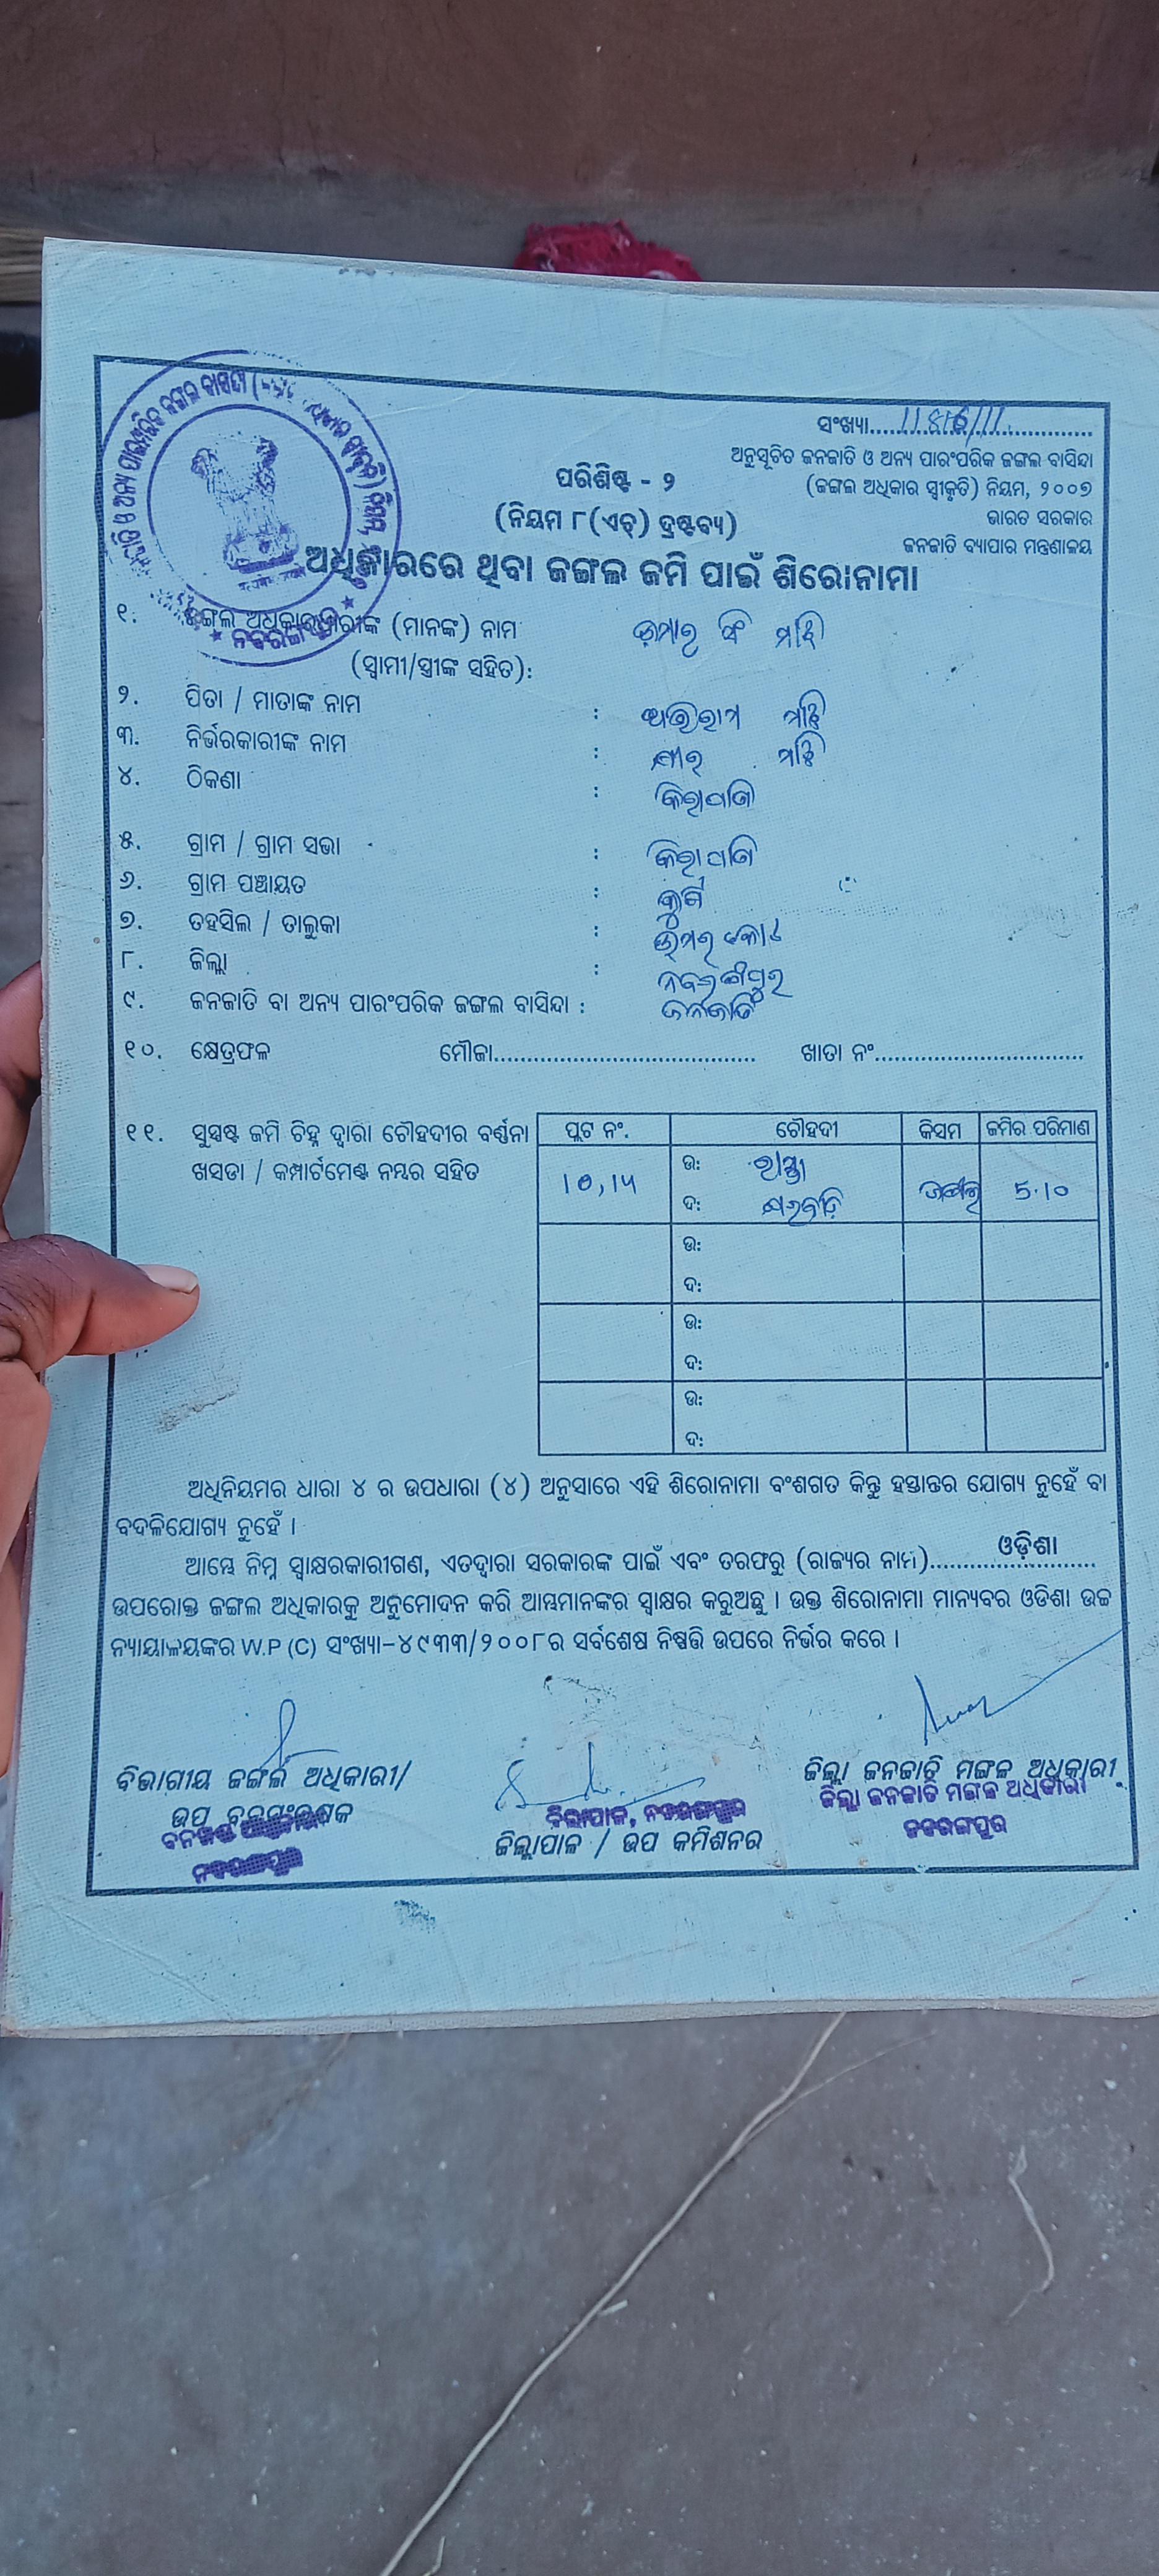 ସଂଖ୍ୟା................................
ଅନୁସୂଚିତ ଜନଜାତି ଓ ଅନ୍ୟ ପାରଂପରିକ ଜଙ୍ଗଲ ବାସିନ୍ଦା
(ଜଙ୍ଗଲ ଅଧିକାର ସ୍ୱୀକୃତି) ନିୟମ, ୨୦୦୭
ଭାରତ ସରକାର
ଜନଜାତି ବ୍ୟାପାର ମନ୍ତ୍ରଣାଳୟ
ପରିଶିଷ୍ଟ - ୨
(ନିୟମ ୮(ଏଚ୍) ଦ୍ରଷ୍ଟବ୍ୟ)
ଅଧିକାରରେ ଥିବା ଜଙ୍ଗଲ ଜମି ପାଇଁ ଶିରୋନାମା
୧. ଜଙ୍ଗଲ ଅଧିକାରଧାରୀଙ୍କ (ମାନଙ୍କ) ନାମ
(ସ୍ୱାମୀ/ସ୍ତ୍ରୀଙ୍କ ସହିତ):
୨. ପିତା / ମାତାଙ୍କ ନାମ : ଅଭିରାମ ମାଝି
୩. ନିର୍ଭରକାରୀଙ୍କ ନାମ : ମାଝି
୪. ଠିକଣା :
୫. ଗ୍ରାମ / ଗ୍ରାମ ସଭା :
୬. ଗ୍ରାମ ପଞ୍ଚାୟତ :
୭. ତହସିଲ / ତାଲୁକା : ଉମରକୋଟ
୮. ଜିଲ୍ଲା : ନବରଙ୍ଗପୁର
୯. ଜନଜାତି ବା ଅନ୍ୟ ପାରଂପରିକ ଜଙ୍ଗଲ ବାସିନ୍ଦା : ଜନଜାତି
୧୦. କ୍ଷେତ୍ରଫଳ ମୌଜା...................................... ଖାତା ନଂ................................
୧୧. ସୁସ୍ପଷ୍ଟ ଜମି ଚିହ୍ନ ଦ୍ୱାରା ଚୌହଦୀର ବର୍ଣ୍ଣନା
ଖସଡା / କମ୍ପାର୍ଟମେଣ୍ଟ ନମ୍ବର ସହିତ
ପ୍ଲଟ ନଂ. ଚୌହଦୀ କିସମ ଜମିର ପରିମାଣ
ଉ: ରାସ୍ତା
ଦ: ଘରବାଡ଼ି ଜଙ୍ଗଲ 5.10
ଉ:
ଦ:
ଉ:
ଦ:
ଉ:
ଦ:
ଅଧିନିୟମର ଧାରା ୪ ର ଉପଧାରା (୪) ଅନୁସାରେ ଏହି ଶିରୋନାମା ବଂଶଗତ କିନ୍ତୁ ହସ୍ତାନ୍ତର ଯୋଗ୍ୟ ନୁହେଁ ବା
ବଦଳିଯୋଗ୍ୟ ନୁହେଁ ।
ଆମ୍ଭେ ନିମ୍ନ ସ୍ୱାକ୍ଷରକାରୀଗଣ, ଏତଦ୍ୱାରା ସରକାରଙ୍କ ପାଇଁ ଏବଂ ତରଫରୁ (ରାଜ୍ୟର ନାମ).......ଓଡ଼ିଶା.......
ଉପରୋକ୍ତ ଜଙ୍ଗଲ ଅଧିକାରକୁ ଅନୁମୋଦନ କରି ଆମ୍ଭମାନଙ୍କର ସ୍ୱାକ୍ଷର କରୁଅଛୁ । ଉକ୍ତ ଶିରୋନାମା ମାନ୍ୟବର ଓଡିଶା ଉଚ୍ଚ
ନ୍ୟାୟାଳୟଙ୍କର W.P (C) ସଂଖ୍ୟା-୪୯୩୩/୨୦୦୮ର ସର୍ବଶେଷ ନିଷ୍ପତ୍ତି ଉପରେ ନିର୍ଭର କରେ ।
ବିଭାଗୀୟ ଜଙ୍ଗଲ ଅଧିକାରୀ/
ଉପ ବନସଂରକ୍ଷକ
ଜିଲ୍ଲାପାଳ, ନବରଙ୍ଗପୁର
ଜିଲ୍ଲାପାଳ / ଉପ କମିଶନର
ଜିଲ୍ଲା ଜନଜାତି ମଙ୍ଗଳ ଅଧିକାରୀ
ଜିଲ୍ଲା ଜନଜାତି ମଙ୍ଗଳ ଅଧିକାରୀ
ନବରଙ୍ଗପୁର